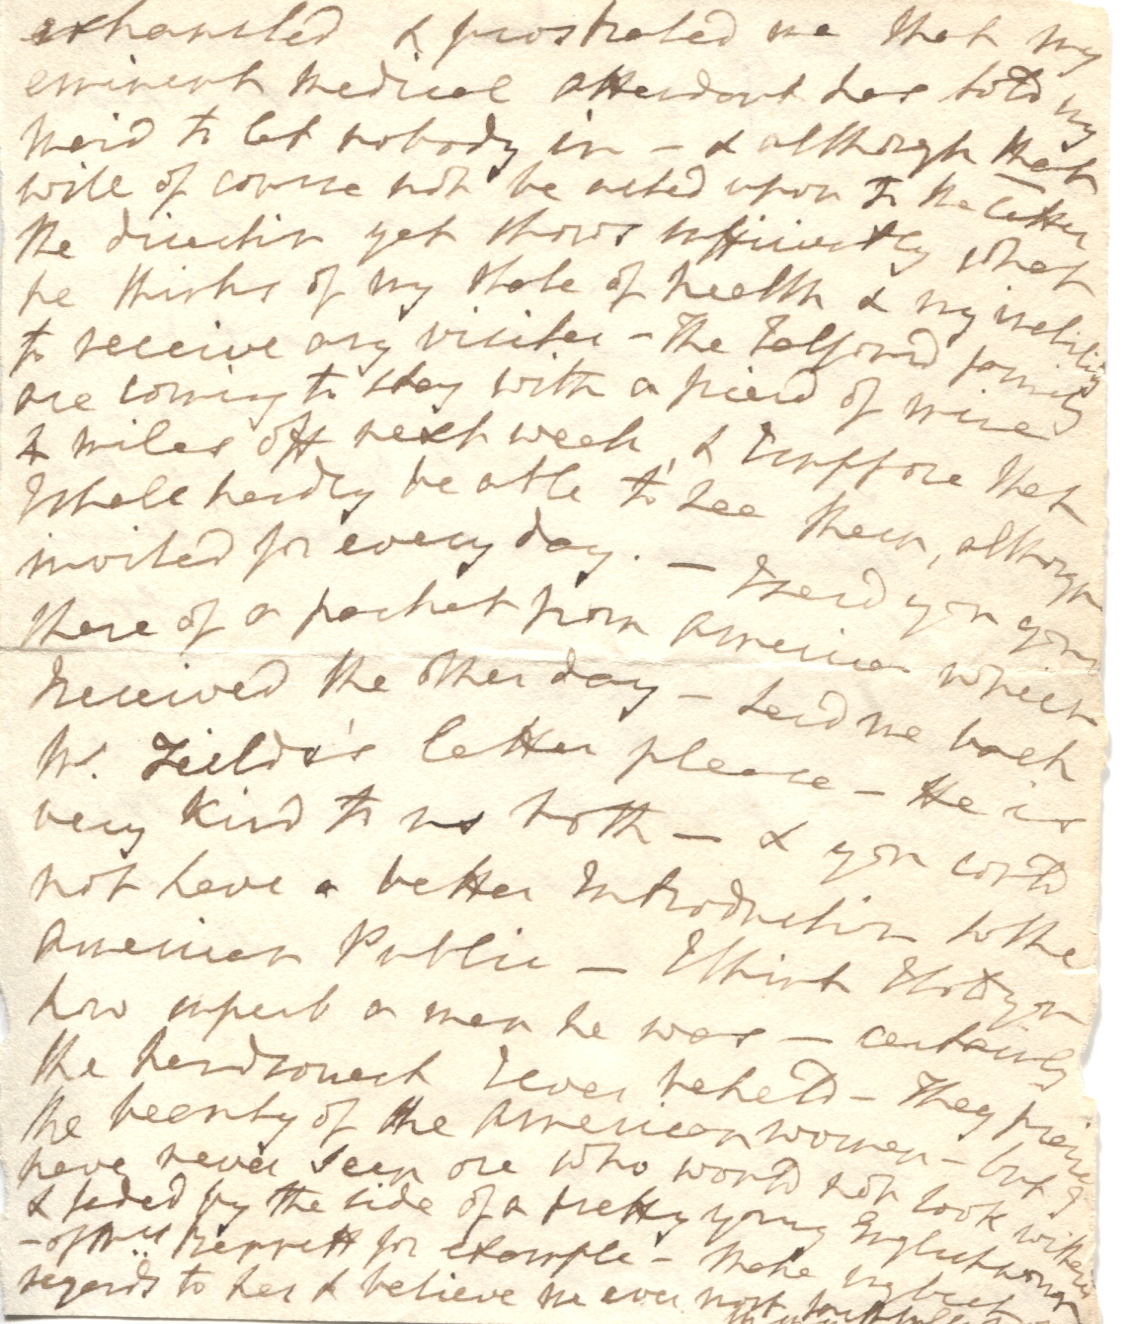 exhausted & prostrated me that my
eminent medical attendant has told my
maid to let nobody in - & although that
will of course not be acted upon to the letter
the direction yet shows sufficiently what
he thinks of my state of health & my inability
to receive any visitor - The Talfourd family
are coming to stay with a friend of mine
miles off next week, & I suppose that
I shall hardly be able to see them, although
invited for every day. - I send you your
share of a packet from America which
I received the other day - Send me back
Mr. Fields's letter please - He is
very kind to us both - & you could
not have a better Introduction to the
American Public - I think I told you
how superb a man he was - certainly
the handsomest I ever beheld - They praise
the beauty of the American women - but I
have never seen one who would not look withered
& faded by the side of a pretty young Englishwoman
- of Mrs Bennett for example - Make my best
regards to her & believe me ever most faithfully